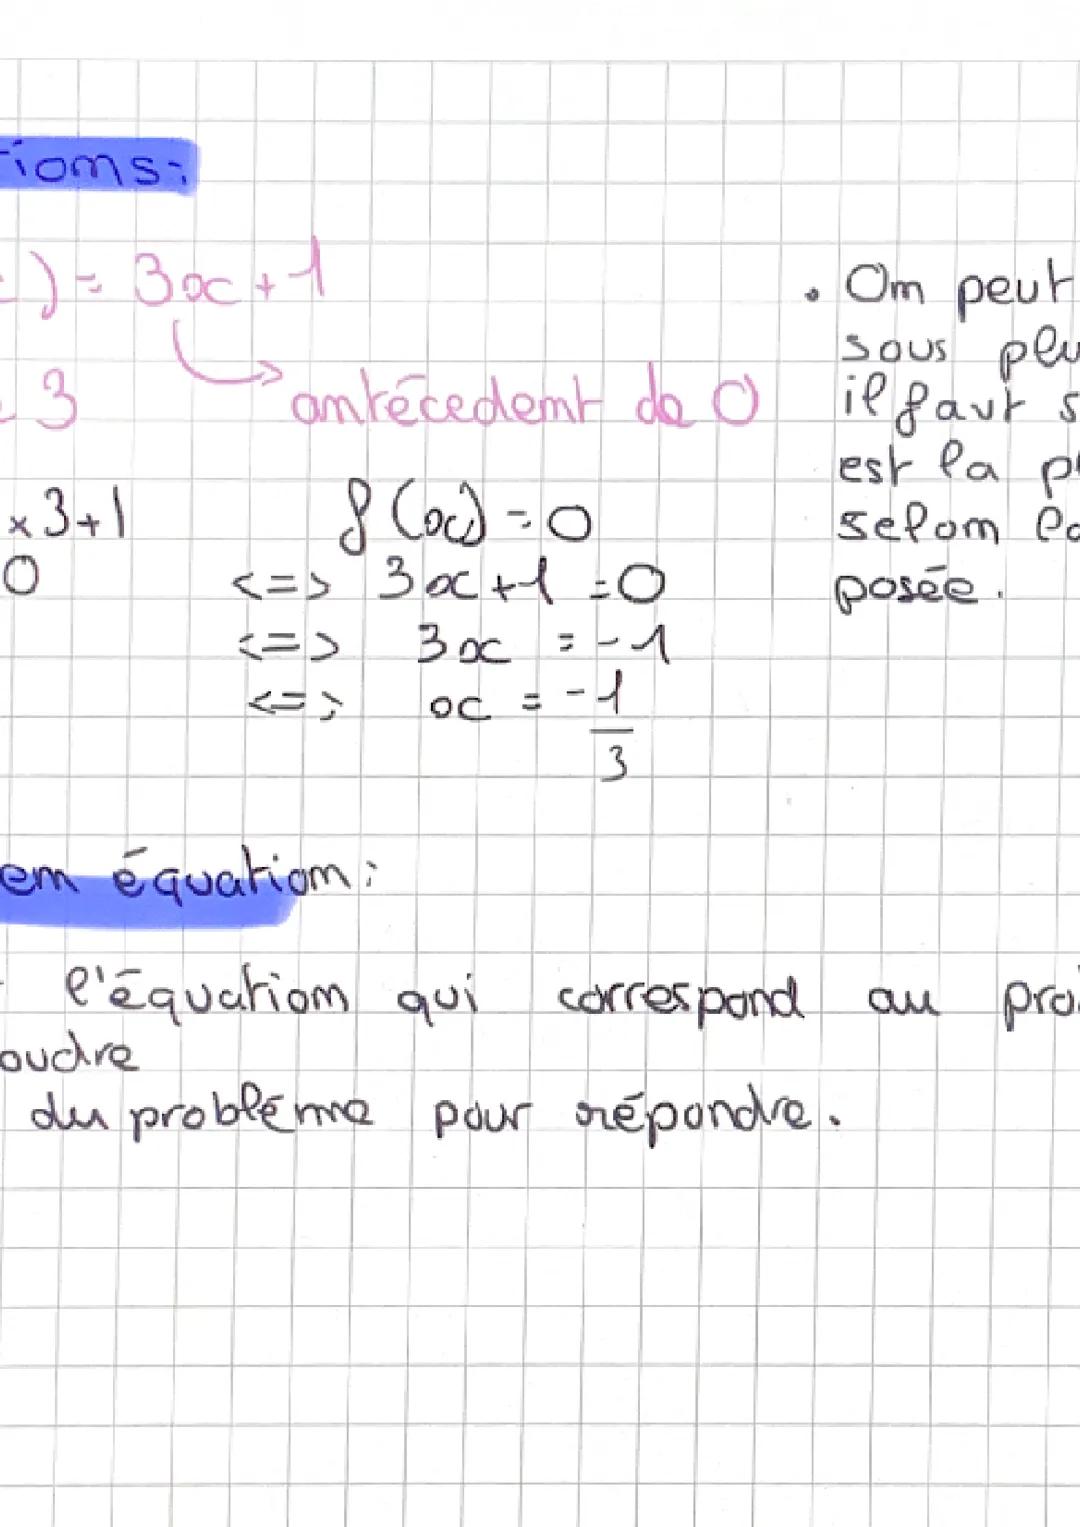 tions:
) = 3x + 1
3
antécédent de 0
x 3 + 1
0
f(x) = 0
<=> 3x + 1 = 0
<=> 3x = -1
<=> x = -1
3
• On peut
sous plu
il faut s
est la p
selon la
posée.
en équation :
l'équation qui correspond au pro
oudre
du problème pour répondre.